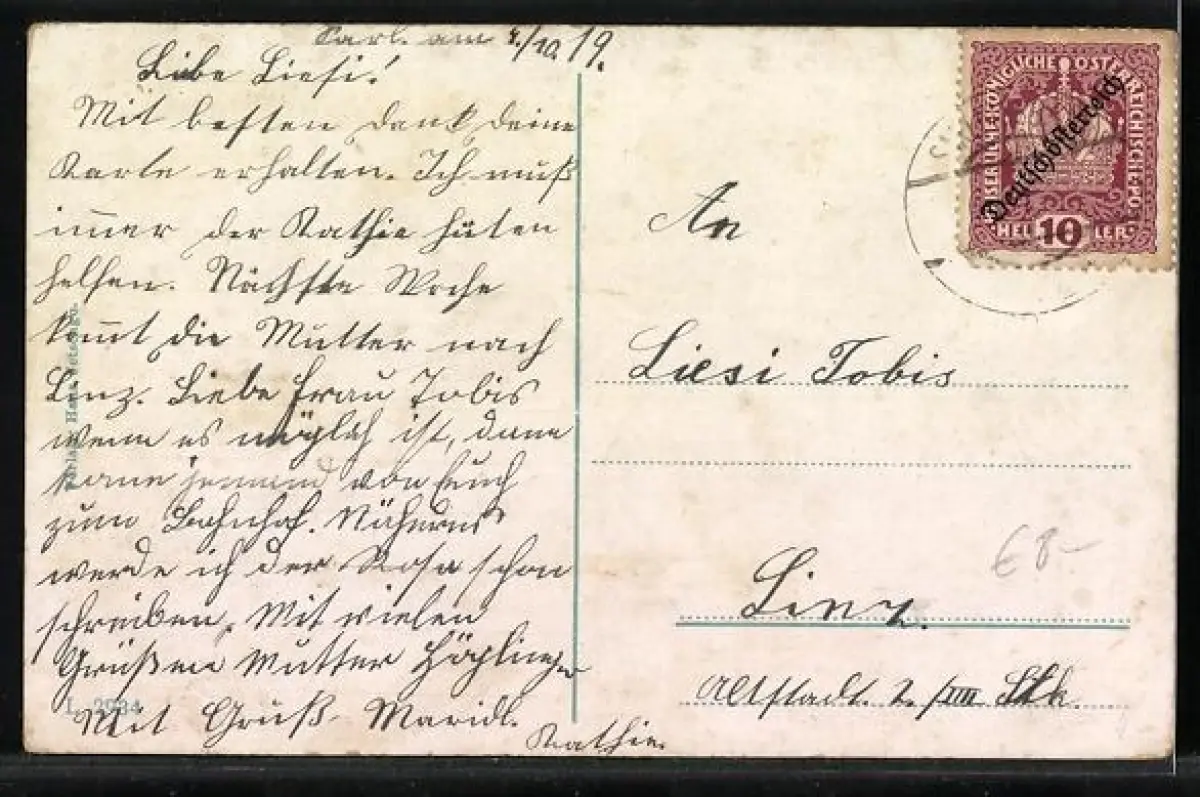 Karl. am 4./10.19.
Liebe Liesi!
Mit besten Dank deine
Karte erhalten. Ich muß
immer der Kathie hüten
helfen. Nächste Woche
kommt die Mutter nach
Linz. Liebe Frau Tobis
wenn es möglich ist, dann
kann jemand von Euch
zum Bahnhof. Näheres
werde ich der Rosa schon
schreiben. Mit vielen
Grüßen Mutter Höglinger
Mit Gruß Maridl.
Kathie.
L. 2934
KAISERLICHE KÖNIGLICHE ÖSTERREICHISCHE POST
Deutschösterreich
HELLER 10
An
Liesi Tobis
Linz.
Altstadt 2 /III Stk.
€ 8.-